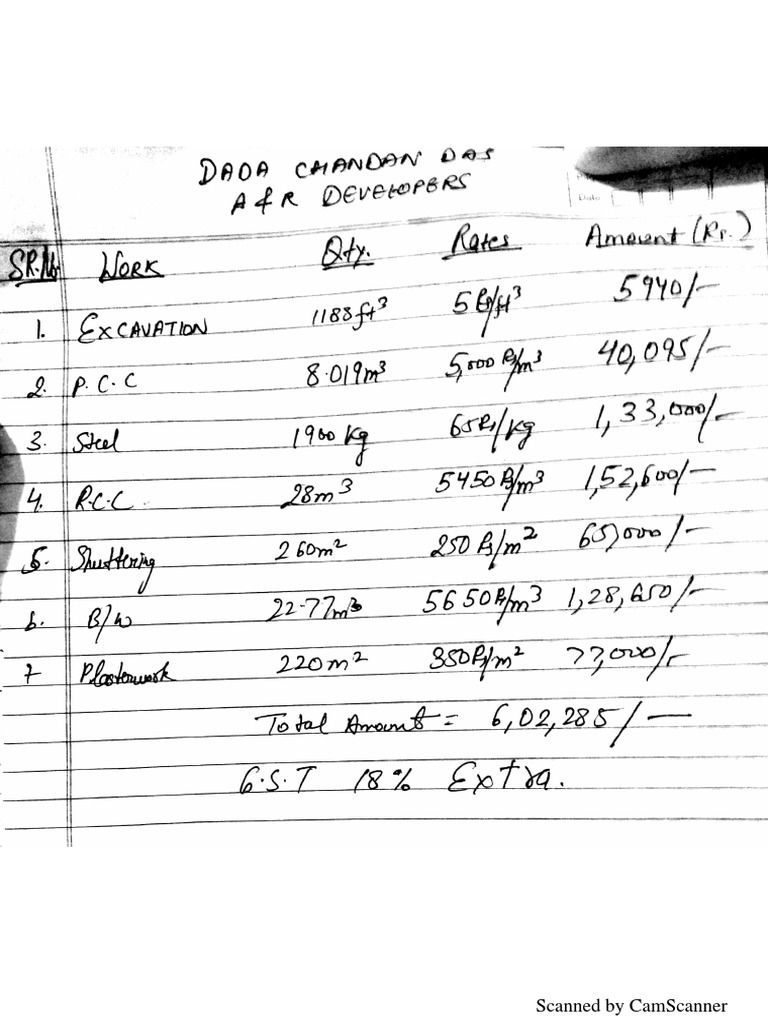 DADA CHANDAN DAS
A & R DEVELOPERS
SR.No WORK Qty. Rates Amount (Rs.)
1. EXCAVATION 1188 ft³ 5 Rs/ft³ 5940/-
2. P.C.C 8.019m³ 5,000 Rs/m³ 40,095/-
3. Steel 1900 kg 65Rs/kg 1,33,000/-
4. R.C.C. 28m³ 5450 Rs/m³ 1,52,600/-
5. Shuttering 260m² 250 Rs/m² 65,000/-
6. B/W 22.77m³ 5650Rs/m³ 1,28,650/-
7 Plasterwork 220m² 350Rs/m² 77,000/-
Total Amount = 6,02,285/-
G.S.T 18% Extra.
Scanned by CamScanner